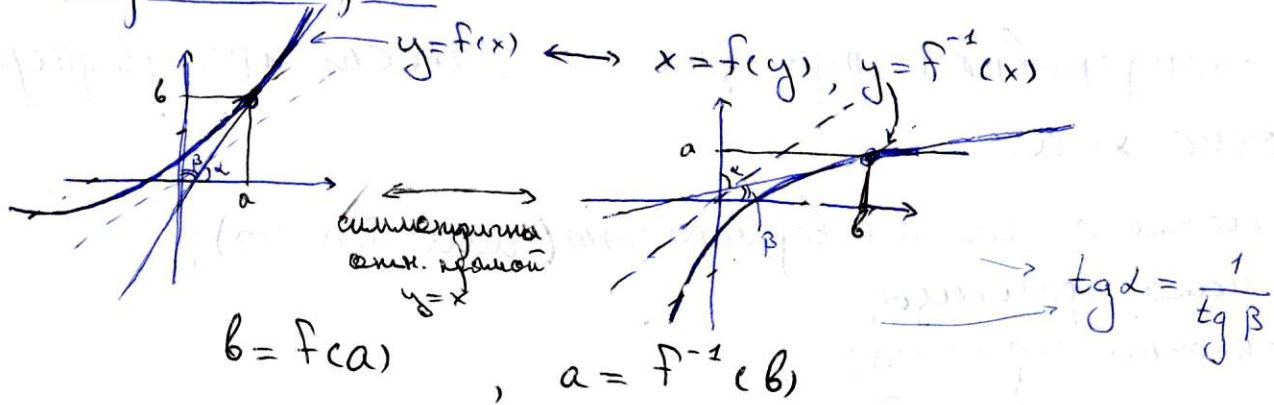 y = f(x) ⟷ x = f(y), y = f⁻¹(x)
b
β α
a
a
α
β
b
симметричны
отн. прямой
y = x
tg α = 1 / tg β
b = f(a) , a = f⁻¹(b)